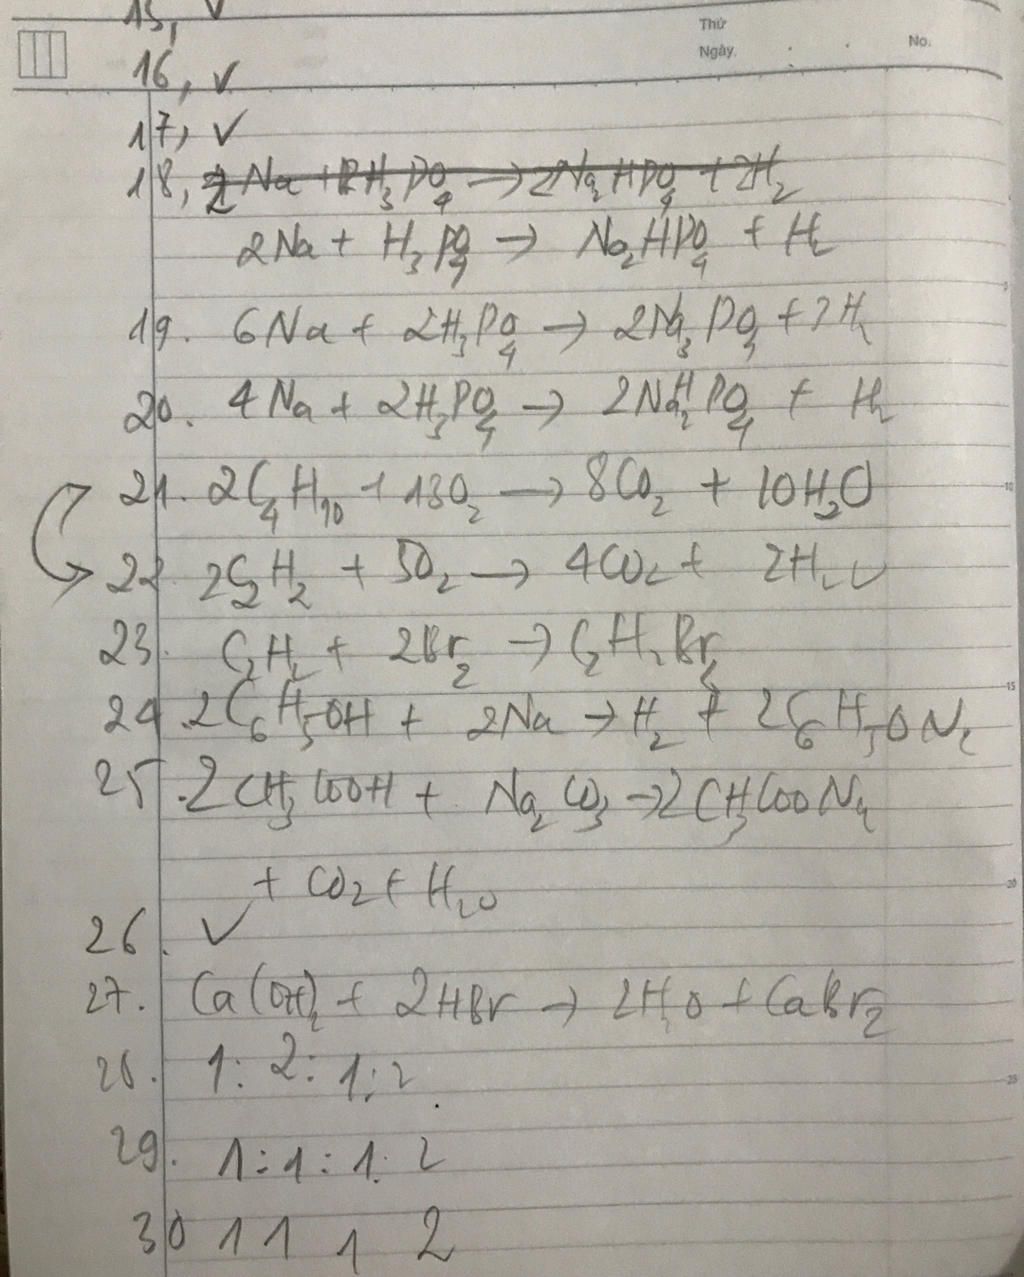 15, ✓
Thứ
Ngày.
No.
16, ✓
17, ✓
18, 2Na + 2H₃PO₄ → 2Na₂HPO₄ + 2H₂
2Na + H₃PO₄ → Na₂HPO₄ + H₂
19. 6Na + 2H₃PO₄ → 2Na₃PO₄ + 3H₂
20. 4Na + 2H₃PO₄ → 2NaH₂PO₄ + H₂
21. 2C₄H₁₀ + 13O₂ → 8CO₂ + 10H₂O
22. 2C₂H₂ + 5O₂ → 4CO₂ + 2H₂O
23. C₂H₂ + 2Br₂ → C₂H₂Br₂
24. 2C₆H₅OH + 2Na → H₂ + 2C₆H₅ONa
25. 2CH₃COOH + Na₂CO₃ → 2CH₃COONa
+ CO₂ + H₂O
26. ✓
27. Ca(OH)₂ + 2HBr → 2H₂O + CaBr₂
28. 1:2:1:2
29. 1:1:1:2
30 1 1 1 2